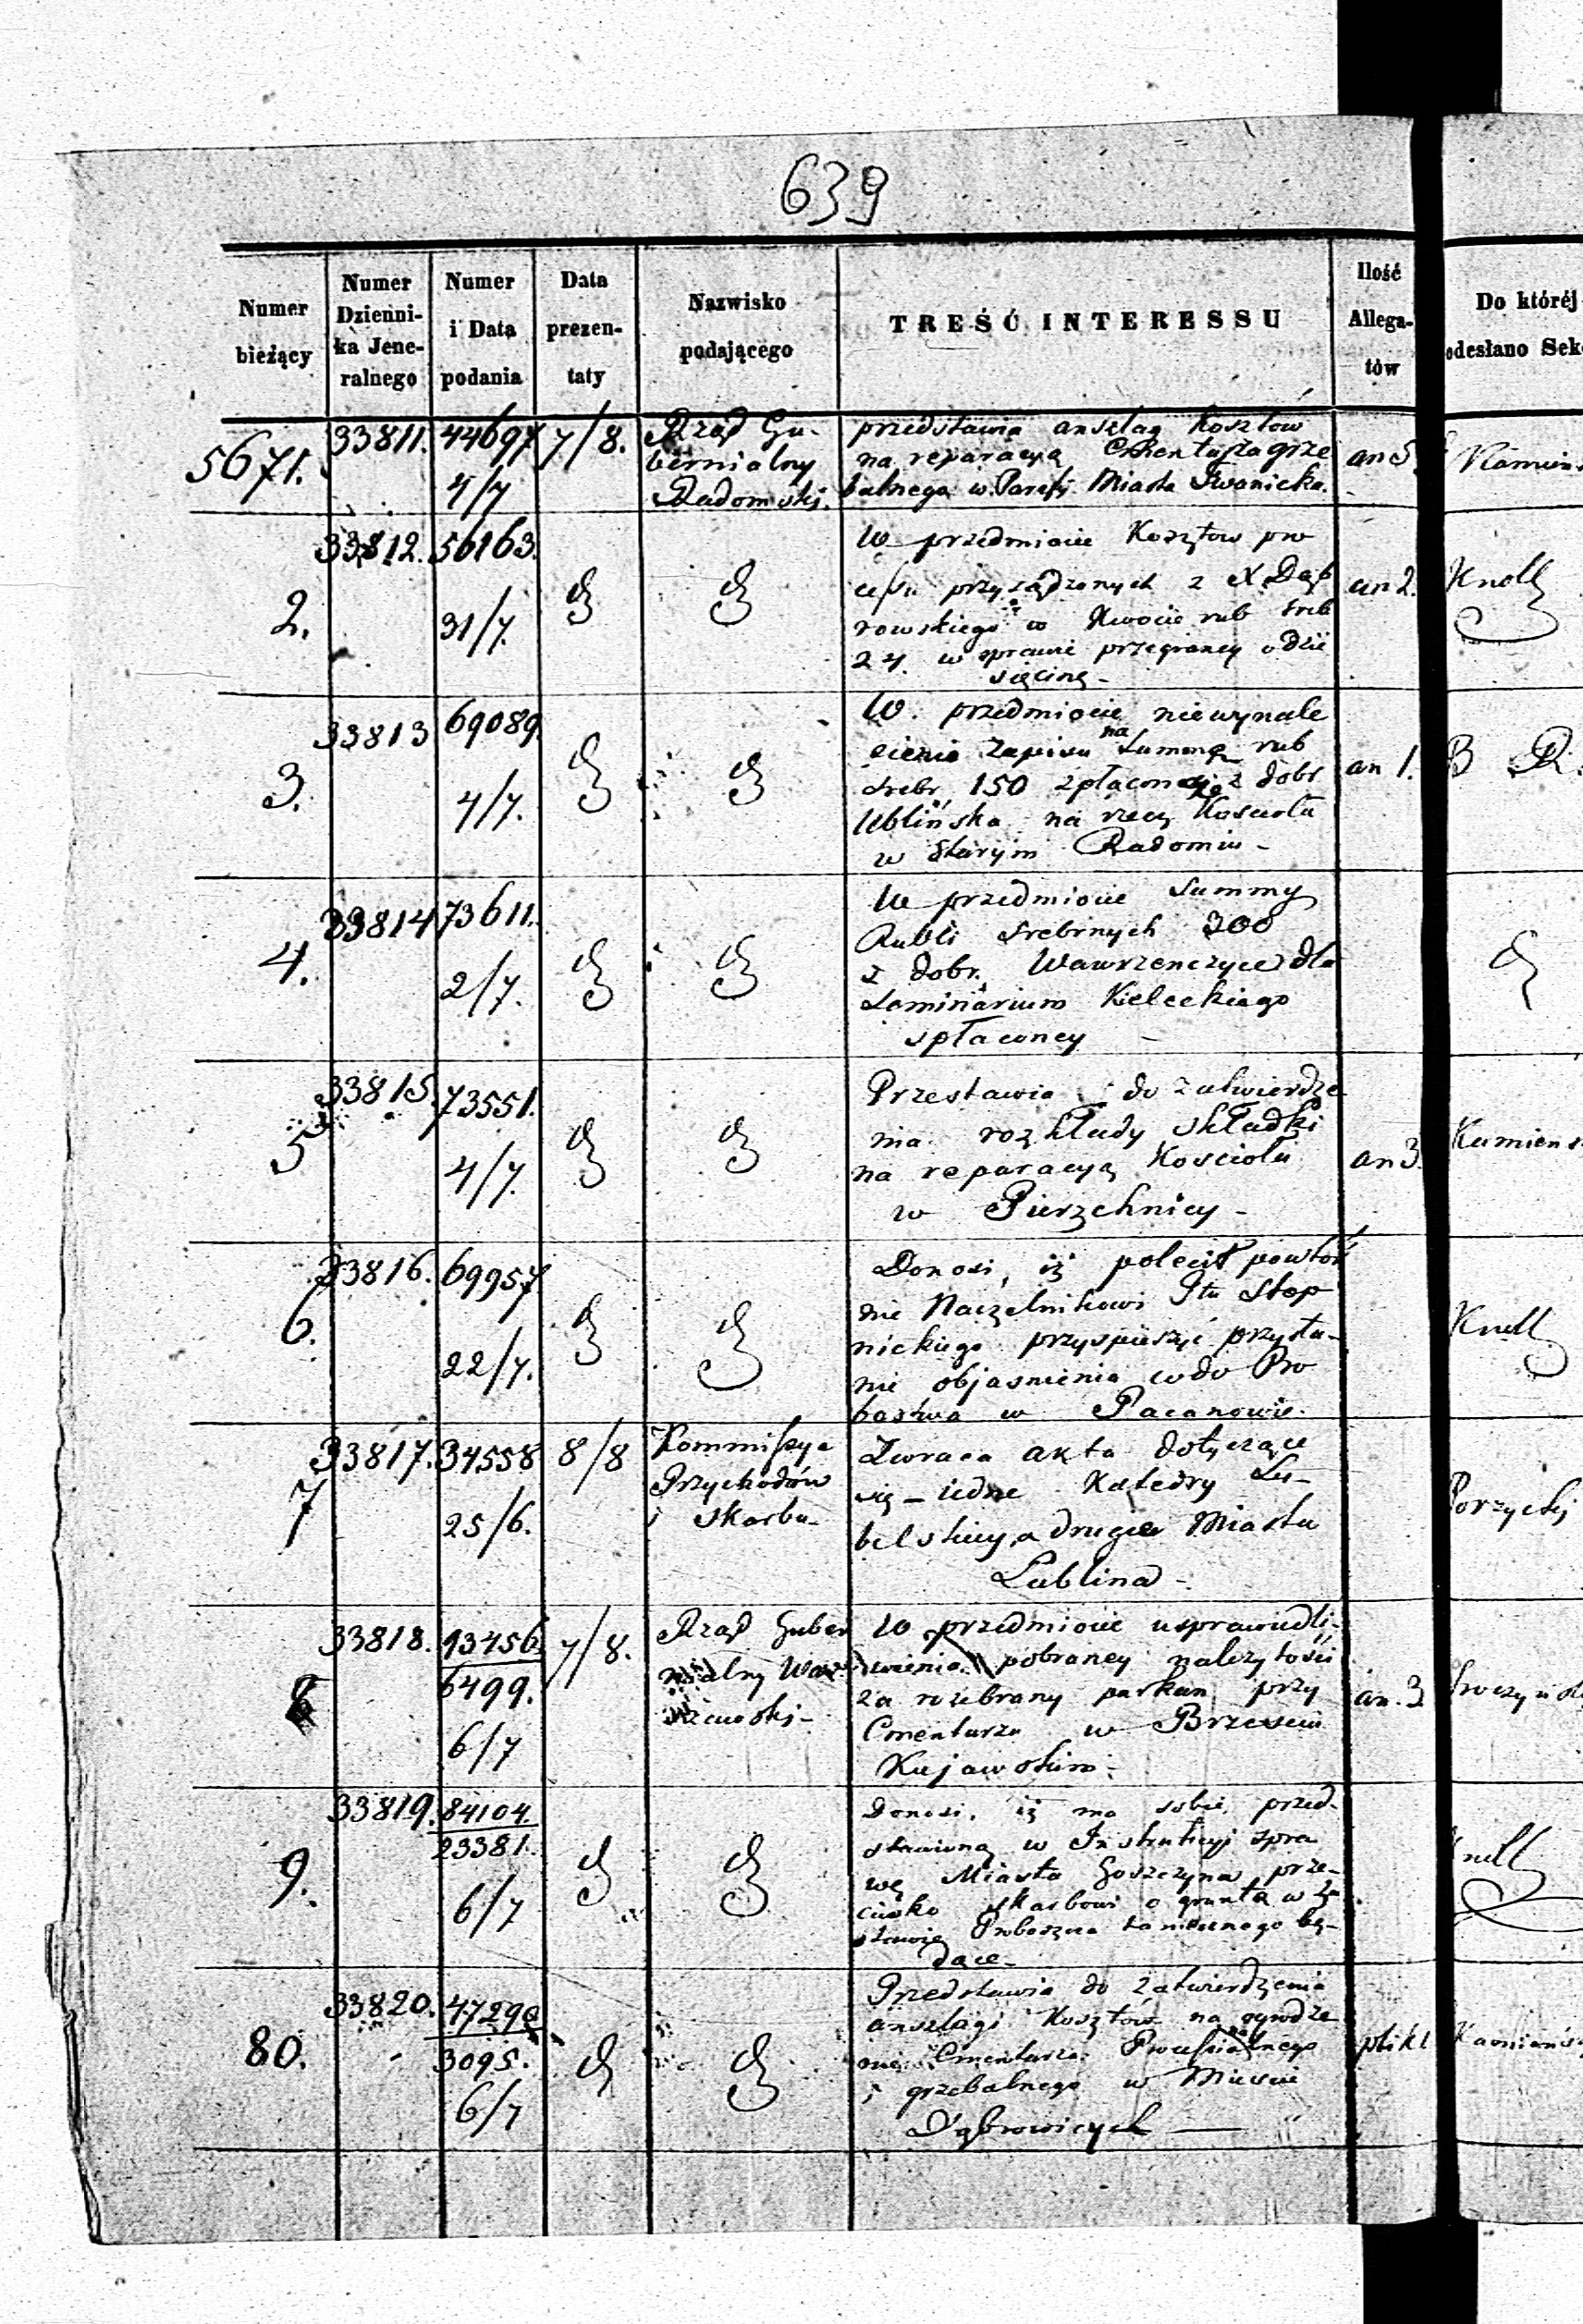 639
Numer bieżący
Numer Dzienni-ka Jene-ralnego
Numer i Data podania
Data prezen-taty
Nazwisko podającego
TREŚĆ INTERESSU
Ilość Allega-tów
Do któréj
odesłano Sek
5671. 33811. 44697 4/7 7/8.
Rząd Gu-
bernialny
Radomski.
przedstawia anszlag Kosztów
na reparacyą Cmentarza grze
balnego w Parafji Miasta Iwanicka.
an 5
2. 33812. 56163. 31/7.
W przedmiocie Kosztow pro
cessu przysądzonych z X Dąb
rowskiego w Kwocie rub sreb
24. w sprawie przegraney o dzie
sięcinę -
an 2.
Knoll
3. 33813 69089. 4/7.
W. przedmiocie niewynale
zienia Zapisu na Summę rub
srebr. 150 spłaconą z dobr
Ublińska na rzecz Kościoła
w Starym Radomiu -
an 1.
B R.
4. 33814 73611. 2/7.
W przedmiocie Summy
Rubli srebrnych 300
z dobr. Wawrzenczyce dla
Seminarium Kieleckiego
spłaconey -
5 33815. 73551. 4/7.
Przestawia do zatwierdze
nia rozkłady składki
na reparacyą Kościoła
w Pierzchnicy -
an 3.
Kamiens
6. 33816. 69957 22/7.
Donosi, iż polecił powtór
nie Naczelnikowi Ptu Stop
nickiego przyspieszyć przysła-
nie objasnienia co do Pro
bostwa w Pacanowie.
Knoll
7 33817. 34558 25/6. 8/8
Kommissya
Przychodów
i Skarbu
Zwraca akta dotyczące
się - iedne Katedry Lu-
belskiey, a drugie Miasta
Lublina -
Porzycki
8 33818. 93456 6499. 6/7 7/8.
Rząd Guber
nialny War
szawski -
W przedmiocie usprawiedli-
wienia pobraney należytości
za rozebrany parkan przy
Cmentarzu w Brzesciu
Kujawskim.
an. 3
9. 33819. 84104. 23381. 6/7
Donosi, iż ma sobie przed-
stawioną w Instrukcyi spra
wę Miasta Goszczyna prze-
ciwko Skarbowi o grunta w
Proboszcza tamecznego bę-
dące -
80. 33820. 47290 3095. 6/7
Przedstawia do zatwierdzenia
anszlagi Kosztów na ogrodze
nie Cmentarza Procesialnego
i grzebalnego w Miescie
Dąbrowicych
plik 1
Kamieńs